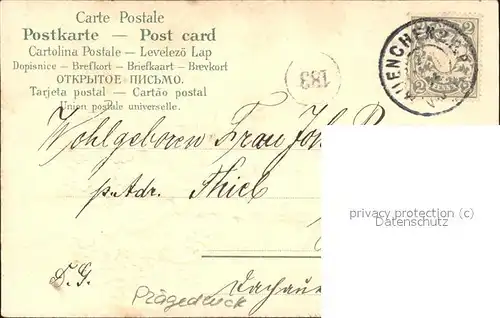 Carte Postale
Postkarte — Post card
Cartolina Postale – Levelező Lap
Dopisnice – Brefkort – Briefkaart – Brevkort
ОТКРЫТОЕ ПИСЬМО.
Tarjeta postal – Cartão postal
Union postale universelle.
183
MUENCHEN
2 2
Wohlgeboren Frau Joh
p. Adr. Thiel
privacy protection (c)
Datenschutz
D. G.
Dachaue
Prägedruck